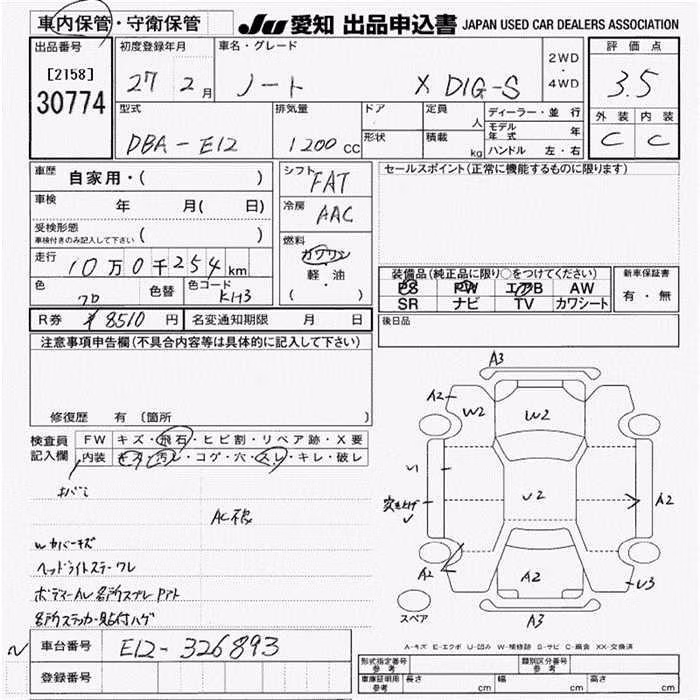 車内保管・守衛保管
JU 愛知 出品申込書 JAPAN USED CAR DEALERS ASSOCIATION
出品番号
[2158]
30774
初度登録年月
27 2月
車名・グレード
ノート X DIG-S
2WD
・
4WD
評価点
3.5
外装 内装
C C
型式
DBA-E12
排気量
1200cc
ドア
形状
定員 人
積載 kg
ディーラー・並行
モデル年式 年
ハンドル 左・右
車歴 自家用・( )
車検 年 月( 日)
受検形態
車検付きのみ記入して下さい ( )
走行 10万0千254km
色 色替 色コード KH3
シフト FAT
冷房 AAC
燃料
ガソリン
軽・油
( )
セールスポイント(正常に機能するものに限ります)
装備品(純正品に限り○をつけてください)
PS PW エアB AW
SR ナビ TV カワシート
新車保証書
有・無
後日品
R券 ¥8510円 名変通知期限 月 日
注意事項申告欄(不具合内容等は具体的に記入して下さい)
修復歴 有 〔箇所 〕
検査員記入欄
FW キズ・飛石・ヒビ割・リペア跡・X要
内装 キズ・汚レ・コゲ・穴・スレ・キレ・破レ
AC
カバーキズ
ヘッドライトステーワレ
A3
A2
W2
W2
U2
A2
A2
A2
U3
A3
スペア
A-キズ E-エクボ U-凹み W-補修跡 S-サビ C-腐食 XX-交換済
車台番号 E12-326893
登録番号
形式指定番号 参考
類別区分番号 参考
車庫証明用 参考 長さ cm 幅 cm 高さ cm